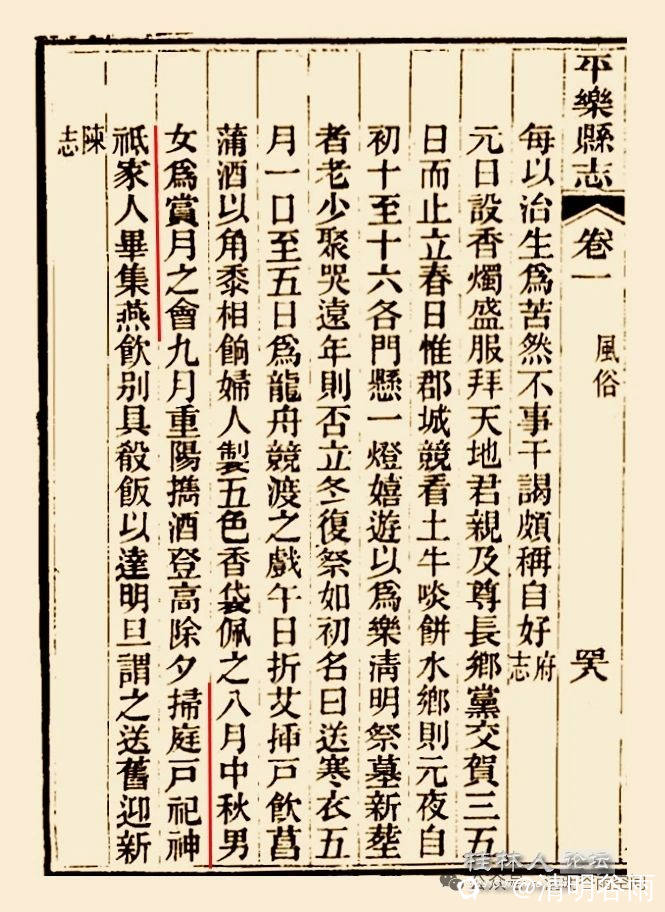 平樂縣志 卷一 風俗
每以治生爲苦然不事干謁頗稱自好府志
元日設香燭盛服拜天地君親及尊長鄉黨交賀三五
日而止立春日惟郡城競看土牛啖餅水鄉則元夜自
初十至十六各門懸一燈嬉遊以爲樂淸明祭墓新塟
者老少聚哭遠年則否立冬復祭如初名曰送寒衣五
月一日至五日爲龍舟競渡之戲午日折艾揷戸飲菖
蒲酒以角黍相餉婦人製五色香袋佩之八月中秋男
女爲賞月之會九月重陽擕酒登高除夕掃庭戸祀神
祇家人畢集燕飲别具殽飯以達明旦謂之送舊迎新
陳志
桂林人论坛
公众号
@清明谷雨